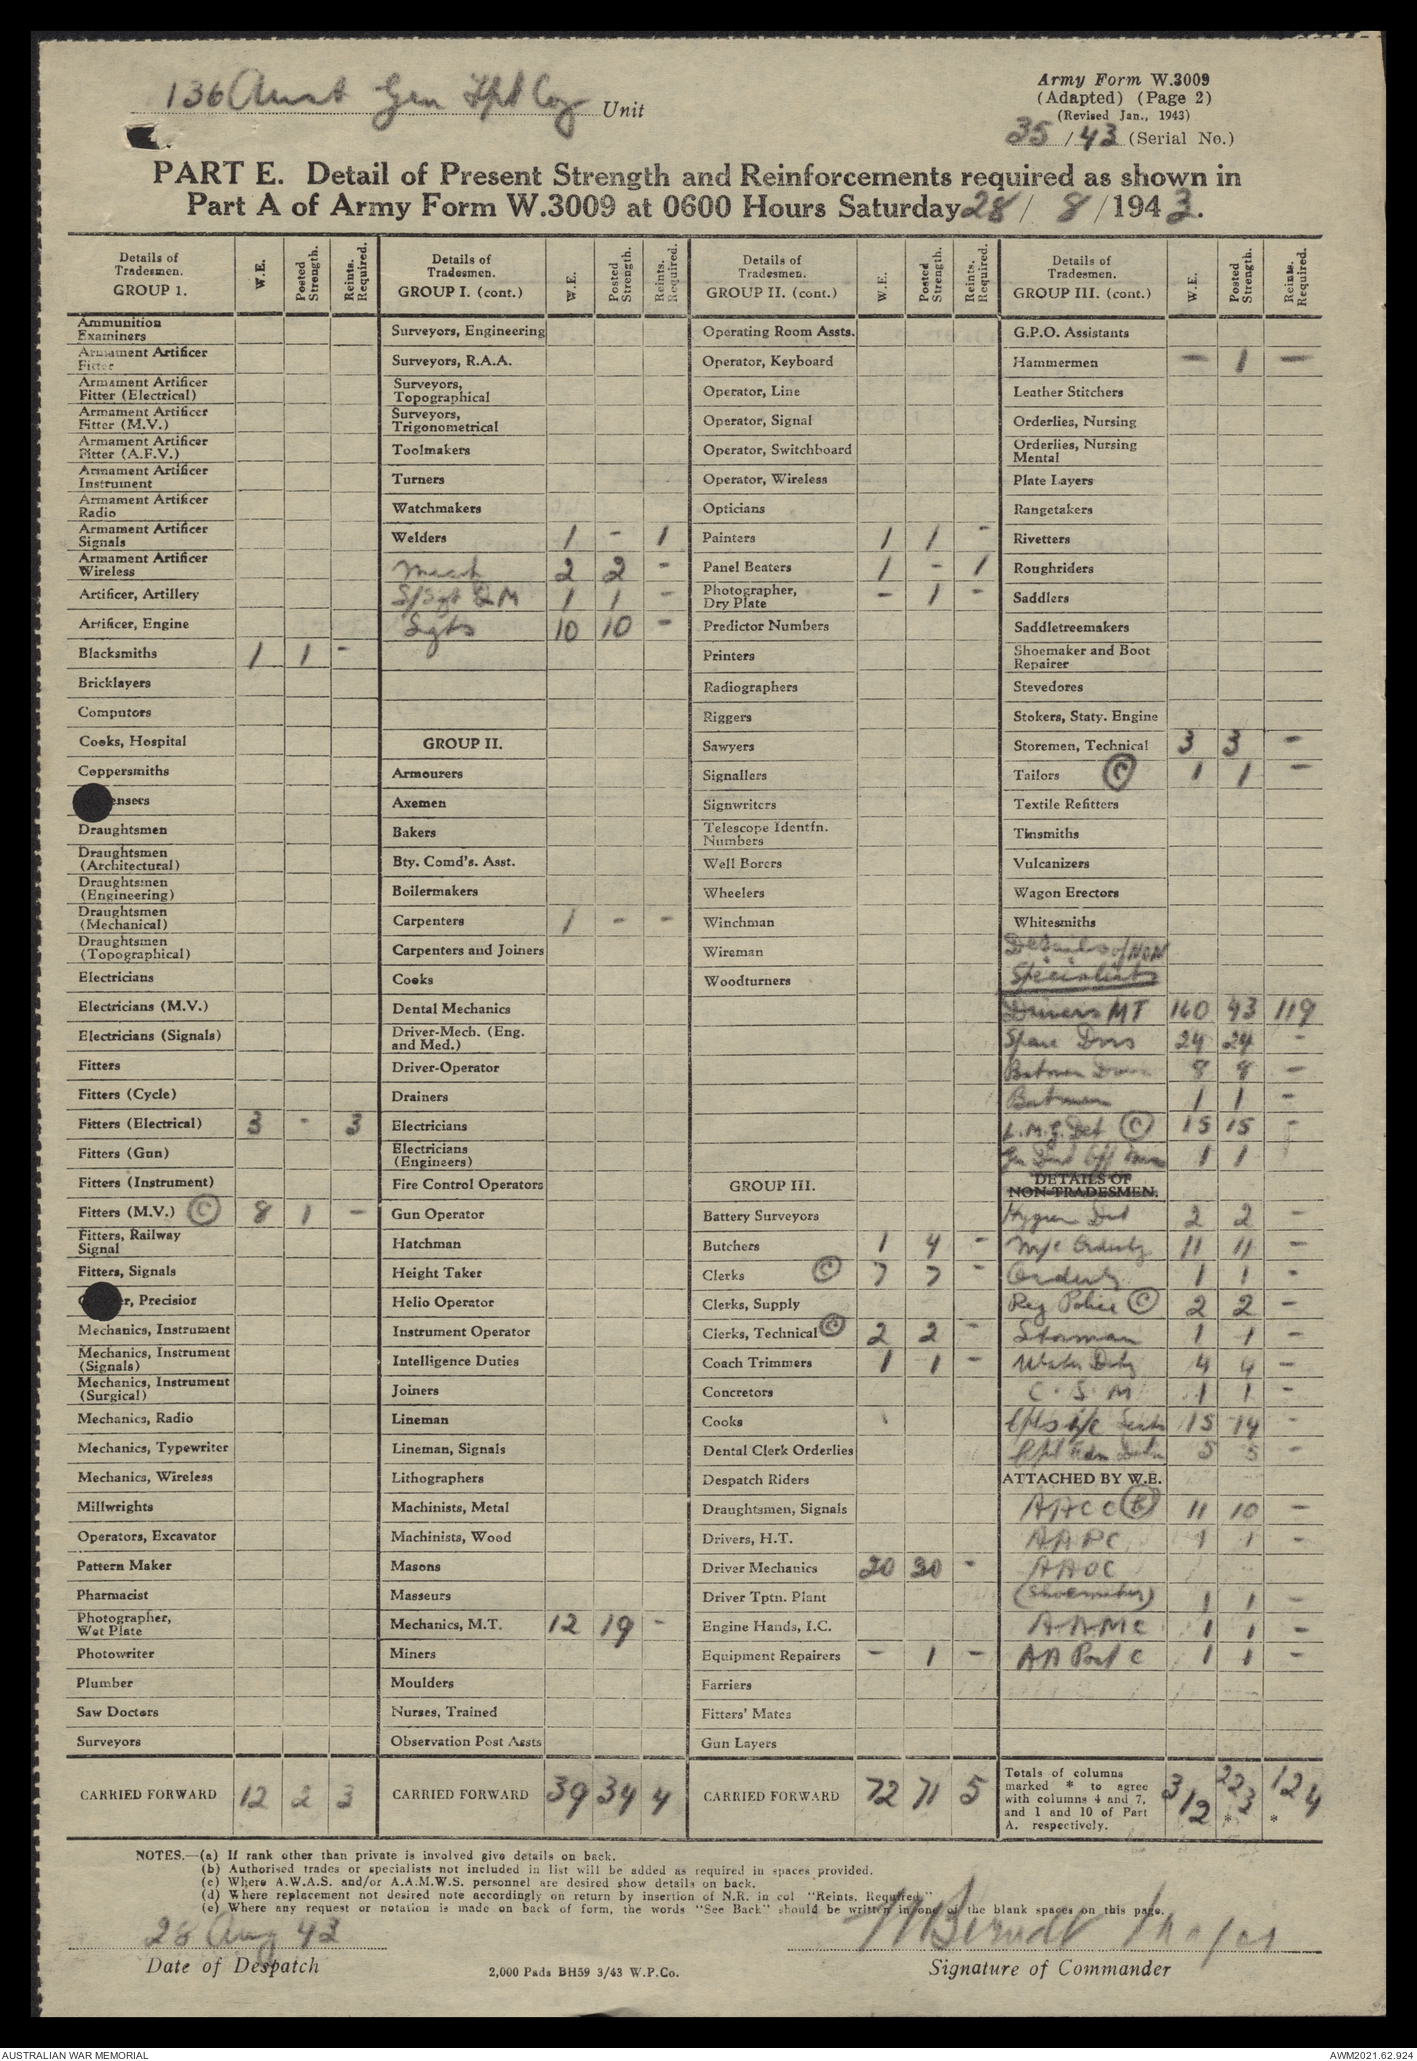 136 Aust Gen Tpt Coy Unit
Army Form W.3009
(Adapted) (Page 2)
(Revised Jan., 1943)
35/43 (Serial No.)
PART E. Detail of Present Strength and Reinforcements required as shown in
Part A of Army Form W.3009 at 0600 Hours Saturday 28/ 8 /1943.
Details of Tradesmen. GROUP 1. W.E. Posted Strength. Reints. Required.
Ammunition Examiners
Armament Artificer Fitter
Armament Artificer Fitter (Electrical)
Armament Artificer Fitter (M.V.)
Armament Artificer Fitter (A.F.V.)
Armament Artificer Instrument
Armament Artificer Radio
Armament Artificer Signals
Armament Artificer Wireless
Artificer, Artillery
Artificer, Engine
Blacksmiths 1 1 -
Bricklayers
Computors
Cooks, Hospital
Coppersmiths
ensers
Draughtsmen
Draughtsmen (Architectural)
Draughtsmen (Engineering)
Draughtsmen (Mechanical)
Draughtsmen (Topographical)
Electricians
Electricians (M.V.)
Electricians (Signals)
Fitters
Fitters (Cycle)
Fitters (Electrical) 3 - 3
Fitters (Gun)
Fitters (Instrument)
Fitters (M.V.) (C) 8 1 -
Fitters, Railway Signal
Fitters, Signals
r, Precision
Mechanics, Instrument
Mechanics, Instrument (Signals)
Mechanics, Instrument (Surgical)
Mechanics, Radio
Mechanics, Typewriter
Mechanics, Wireless
Millwrights
Operators, Excavator
Pattern Maker
Pharmacist
Photographer, Wet Plate
Photowriter
Plumber
Saw Doctors
Surveyors
CARRIED FORWARD 12 2 3
Details of Tradesmen. GROUP I. (cont.) W.E. Posted Strength. Reints. Required.
Surveyors, Engineering
Surveyors, R.A.A.
Surveyors, Topographical
Surveyors, Trigonometrical
Toolmakers
Turners
Watchmakers
Welders 1 - 1
Mech 2 2 -
S/Sgt Q M 1 1 -
Sgts 10 10 -
GROUP II.
Armourers
Axemen
Bakers
Bty. Comd's. Asst.
Boilermakers
Carpenters 1 - -
Carpenters and Joiners
Cooks
Dental Mechanics
Driver-Mech. (Eng. and Med.)
Driver-Operator
Drainers
Electricians
Electricians (Engineers)
Fire Control Operators
Gun Operator
Hatchman
Height Taker
Helio Operator
Instrument Operator
Intelligence Duties
Joiners
Lineman
Lineman, Signals
Lithographers
Machinists, Metal
Machinists, Wood
Masons
Masseurs
Mechanics, M.T. 12 19 -
Miners
Moulders
Nurses, Trained
Observation Post Assts
CARRIED FORWARD 39 34 4
Details of Tradesmen. GROUP II. (cont.) W.E. Posted Strength. Reints. Required.
Operating Room Assts.
Operator, Keyboard
Operator, Line
Operator, Signal
Operator, Switchboard
Operator, Wireless
Opticians
Painters 1 1 -
Panel Beaters 1 - 1
Photographer, Dry Plate - 1 -
Predictor Numbers
Printers
Radiographers
Riggers
Sawyers
Signallers
Signwriters
Telescope Identfn. Numbers
Well Borers
Wheelers
Winchman
Wireman
Woodturners
GROUP III.
Battery Surveyors
Butchers 1 4 -
Clerks (C) 7 7 -
Clerks, Supply
Clerks, Technical (C) 2 2 -
Coach Trimmers 1 1 -
Concretors
Cooks
Dental Clerk Orderlies
Despatch Riders
Draughtsmen, Signals
Drivers, H.T.
Driver Mechanics 20 20 -
Driver Tptn. Plant
Engine Hands, I.C.
Equipment Repairers - 1 -
Farriers
Fitters' Mates
Gun Layers
CARRIED FORWARD 72 71 5
Details of Tradesmen. GROUP III. (cont.) W.E. Posted Strength. Reints. Required.
G.P.O. Assistants
Hammermen - 1 -
Leather Stitchers
Orderlies, Nursing
Orderlies, Nursing Mental
Plate Layers
Rangetakers
Rivetters
Roughriders
Saddlers
Saddletreemakers
Shoemaker and Boot Repairer
Stevedores
Stokers, Staty. Engine
Storemen, Technical 3 3 -
Tailors (C) 1 1 -
Textile Refitters
Tinsmiths
Vulcanizers
Wagon Erectors
Whitesmiths
Details of NON
Specialists
Drivers MT 160 43 119
Spare Dvrs 24 24 -
Batmen 8 8 -
Batmen 1 1 -
L.M.G. Det (C) 15 15 -
1 1
DETAILS OF NON-TRADESMEN.
Hygiene Dut 2 2 -
M/c Orderly 11 11 -
Orderly 1 1 -
Reg Police (C) 2 2 -
Storeman 1 1 -
Water Duty 4 4 -
C. S. M 1 1 -
Cpls 15 14 -
5 5 -
ATTACHED BY W.E.
AACC 11 10 -
AAPC 1 1 -
AAOC
(Shoemaker) 1 1 -
AAMC 1 1 -
AA Post C 1 1 -
Totals of columns marked * to agree with columns 4 and 7, and 1 and 10 of Part A. respectively. 312 223 * 124 *
NOTES.—(a) If rank other than private is involved give details on back.
(b) Authorised trades or specialists not included in list will be added as required in spaces provided.
(c) Where A.W.A.S. and/or A.A.M.W.S. personnel are desired show details on back.
(d) Where replacement not desired note accordingly on return by insertion of N.R. in col "Reints. Required."
(e) Where any request or notation is made on back of form, the words "See Back" should be written in one of the blank spaces on this page.
28 Aug 43
Date of Despatch
2,000 Pads BH59 3/43 W.P.Co.
Berndt
Signature of Commander
AUSTRALIAN WAR MEMORIAL
AWM2021.62.924